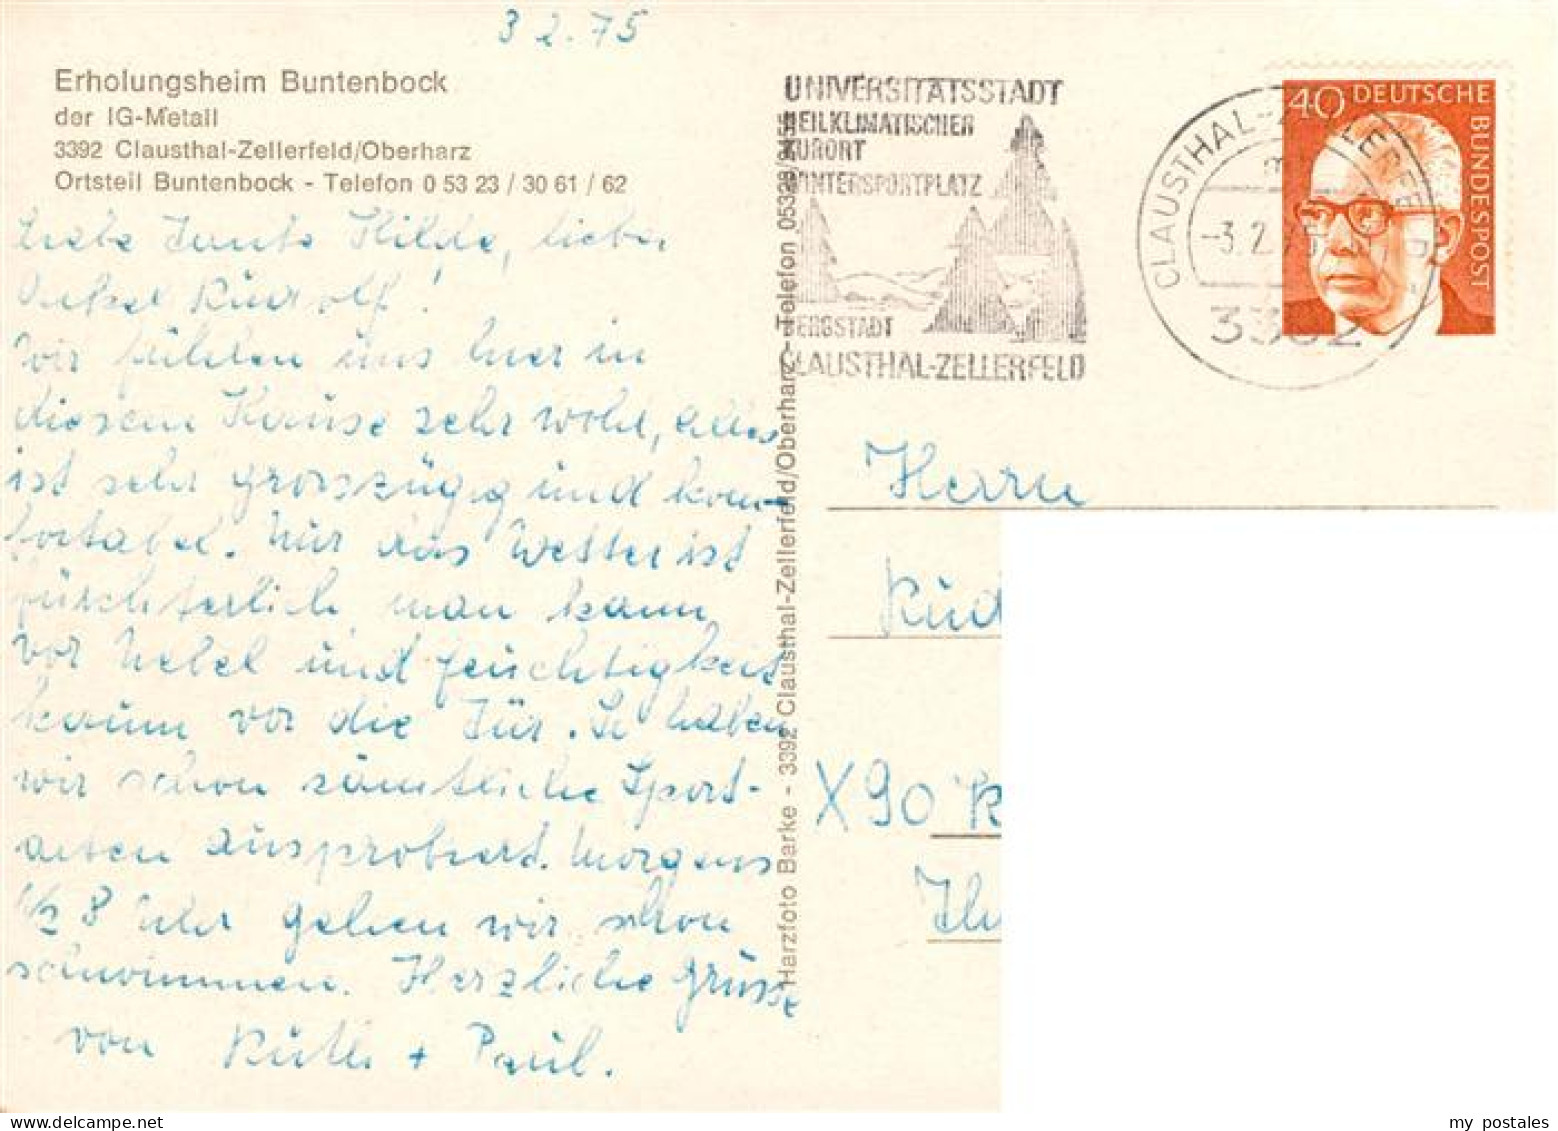 3 2. 75
Erholungsheim Buntenbock
der IG-Metall
3392 Clausthal-Zellerfeld/Oberharz
Ortsteil Buntenbock - Telefon 0 53 23 / 30 61 / 62
Liebe Tante Hilde, lieber
Onkel Rudolf!
Wir fühlen uns hier in
diesem Hause sehr wohl, alles
ist sehr groszügig und kom-
fortabel. Nur das Wetter ist
fürchterlich, man kann
vor Nebel und Feuchtigkeit
kaum vor die Tür. So haben
wir schon sämtliche Sport-
arten ausprobiert. Morgens
1/2 8 Uhr gehen wir schon
schwimmen. Herzliche Grüsse
von Ruth + Paul.
Harzfoto Barke - 3392 Clausthal-Zellerfeld/Oberharz - Telefon 05323/
UNIVERSITÄTSSTADT
HEILKLIMATISCHER
KURORT
WINTERSPORTPLATZ
BERGSTADT
CLAUSTHAL-ZELLERFELD
CLAUSTHAL-ZELLERFELD
-3.2.75
3392
40 DEUTSCHE
BUNDESPOST
Herrn
Rud
X 90 K
my postales